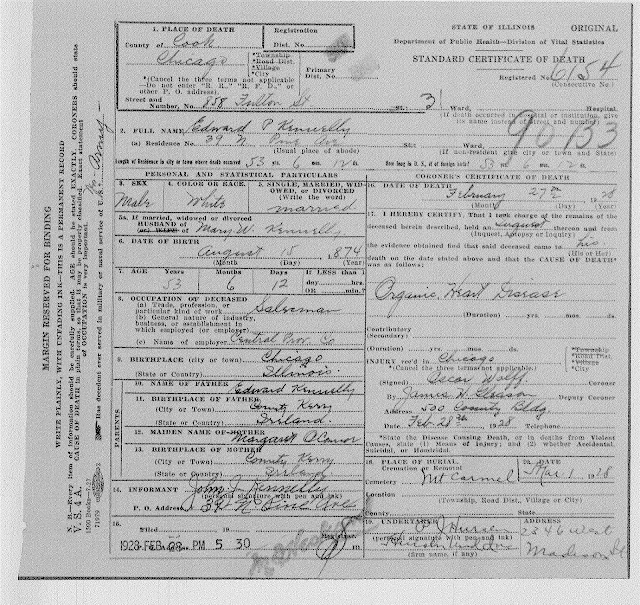 STATE OF ILLINOIS ORIGINAL
Department of Public Health—Division of Vital Statistics
STANDARD CERTIFICATE OF DEATH
Registered No. 6154
(Consecutive No.)
1. PLACE OF DEATH
Registration
Dist. No.
County of Cook
Chicago
*Township
*Road Dist.
*Village
*City
Primary
Dist. No.
*(Cancel the three terms not applicable
—Do not enter "R. R.," "R. F. D.," or
other P. O. address).
Street and
Number, No. 858 Fulton St St.; 31 Ward, Hospital.
(If death occurred in hospital or institution, give
its name instead of street and number)
90133
2. FULL NAME Edward P Kennelly
(a) Residence No. 39 N Pine Ave Ward,
(Usual place of abode)
(If non-resident give city or town and State)
Length of Residence in city or town where death occurred 53 yrs. 6 mos. 12 ds.
How long in U. S., if of foreign birth? 53 yrs. 6 mos. 12 ds.
PERSONAL AND STATISTICAL PARTICULARS
3. SEX
Male
4. COLOR OR RACE.
White
5. SINGLE, MARRIED, WIDOWED, or DIVORCED
(Write the word)
married
5a. If married, widowed or divorced
HUSBAND of
(or) WIFE of Mary W. Kennelly
6. DATE OF BIRTH
August 15 1874
(Month) (Day) (Year)
7. AGE Years Months Days IF LESS than 1
53 6 12 day,....hrs.
OR ....min.?
8. OCCUPATION OF DECEASED
(a) Trade, profession, or
particular kind of work Salesman
(b) General nature of industry,
business, or establishment in
which employed (or employer)
(c) Name of employer Central Prov. Co
9. BIRTHPLACE (city or town) Chicago
(State or Country) Illinois
PARENTS
10. NAME OF FATHER Edward Kennelly
11. BIRTHPLACE OF FATHER
(City or Town) County Kerry
(State or Country) Ireland
12. MAIDEN NAME OF MOTHER
Margaret O'Connor
13. BIRTHPLACE OF MOTHER
(City or Town) County Kerry
(State or Country) Ireland
14. INFORMANT John J Kennelly
(personal signature with pen and ink)
P. O. Address 39 N Pine Ave
15.
Filed 19
1928 FEB 28 PM 5 30
CORONER'S CERTIFICATE OF DEATH
16. DATE OF DEATH
February 27th 1928
(Month) (Day) (Year)
17. I HEREBY CERTIFY, That I took charge of the remains of the
deceased herein described, held an Inquest thereon and from
(Inquest, Autopsy or Inquiry)
the evidence obtained find that said deceased came to his
(His or Her)
death on the date stated above and that the CAUSE OF DEATH*
was as follows:
Organic Heart Disease
(Duration) yrs. mos. ds.
Contributory
(Secondary)
(Duration) yrs. mos. ds.
INJURY rec'd in Chicago
*Township
*Road Dist.
*Village
*City
(Cancel three terms not applicable)
(Signed) Oscar Wolff Coroner
By James W Gleason Deputy Coroner
Address 500 County Bldg
Date Feb. 28th 1928 Telephone
*State the Disease Causing Death, or in deaths from Violent
Causes, state (1) Means of Injury; and (2) whether Accidental,
Suicidal, or Homicidal.
18. PLACE OF BURIAL,
Cremation or Removal
Cemetery Mt Carmel
20. DATE
Mar. 1 1928
Location
(Township, Road Dist, Village or City)
County State
19. UNDERTAKER P J Hursen
(personal signature with pen and ink)
(firm name, if any)
ADDRESS
2346 West
Madison St
MARGIN RESERVED FOR BINDING
WRITE PLAINLY, WITH UNFADING INK—THIS IS A PERMANENT RECORD
N. B.—Every item of information should be carefully supplied. AGE should be stated EXACTLY. CORONERS should state
CAUSE OF DEATH in plain terms, so that it may be properly classified. Exact statement
of OCCUPATION is very important.
Has decedent ever served in military or naval service of U.S.
V. S. 4 A.